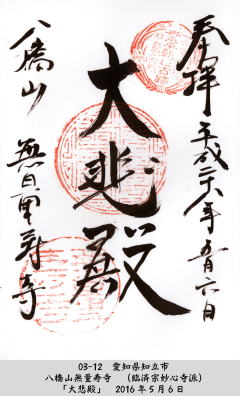 奉拝 平成二八年五月六日
大悲殿
八橋山 無量寿寺
03-12 愛知県知立市
八橋山無量寿寺 （臨済宗妙心寺派）
「大悲殿」 2016年5月6日